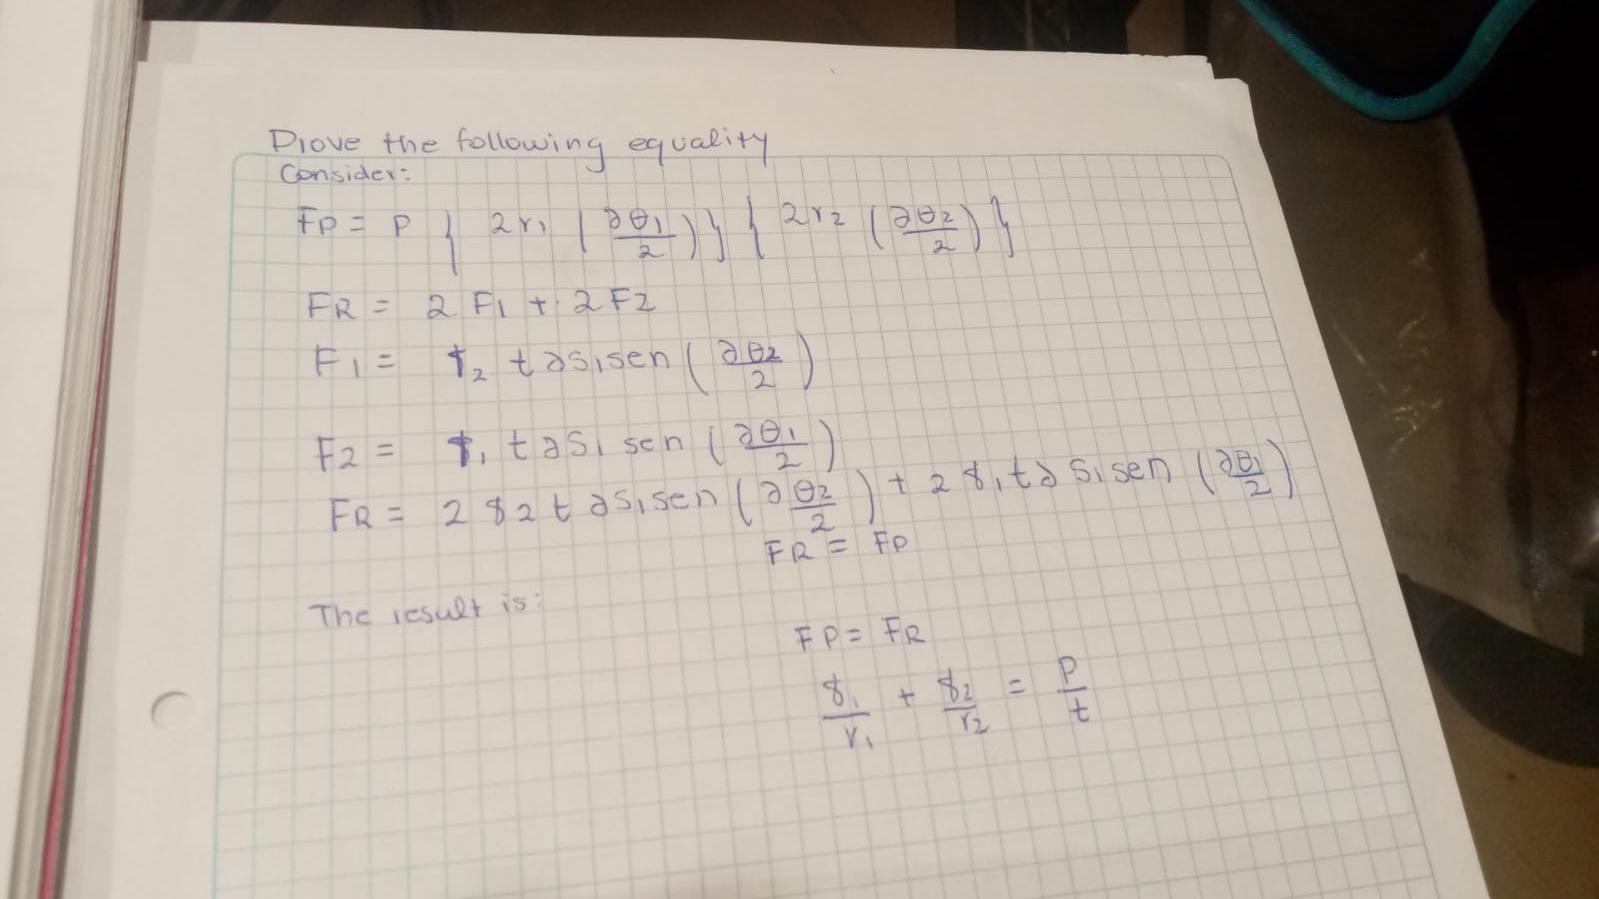 Prove the following equality
Consider:
FP = P { 2r₁ (∂θ₁/2)} { 2r₂ (∂θ₂/2)}
FR = 2 F₁ + 2 F₂
F₁ = t ∂s₁ sen (∂θ₂/2)
F₂ = t ∂s₁ sen (∂θ₁/2)
FR = 2 8₂ t ∂s₁ sen (∂θ₂/2) + 2 8₁ t ∂s₁ sen (∂θ₁/2)
FR = FP
The result is:
FP = FR
8₁/r₁ + 8₂/r₂ = P/t